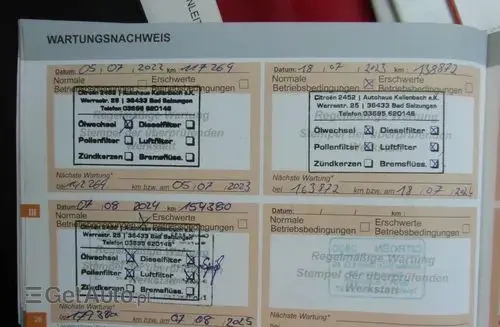 WARTUNGSNACHWEIS
Datum: 05, 07, 2022 km 117269
Normale
Erschwerte
Betriebsbedingungen
Citroën 2452 | Autohaus Kallenbach e.K.
Werrastr. 25 | 36433 Bad Salzungen
Telefon 03695 620146
Ölwechsel Dieselfilter
Pollenfilter Luftfilter
Zündkerzen Bremsflüss.
Nächste Wartung*
bei km bzw. am 05, 07, 2023
Datum: 18, 07, 2023 km 138872
Normale
Erschwerte
Betriebsbedingungen
Betriebsbedingungen
Citroën 2452 | Autohaus Kallenbach e.K.
Werrastr. 25 | 36433 Bad Salzungen
Telefon 03695 620146
Ölwechsel Dieselfilter
Pollenfilter Luftfilter
Zündkerzen Bremsflüss.
Nächste Wartung*
bei 163872 km bzw. am 18, 07, 2024
07, 08 2024 km 154380
Normale
Erschwerte
Betriebsbedingungen
Citroën 2452 | Autohaus Kallenbach e.K.
Werrastr. 25 | 36433 Bad Salzungen
Telefon 03695 620146
Ölwechsel Dieselfilter
Pollenfilter Luftfilter
Zündkerzen Bremsflüss.
Nächste Wartung*
179380 km bzw. am 07, 08 2025
Datum: km
Normale
Erschwerte
Betriebsbedingungen
Betriebsbedingungen
Regelmäßige Wartung
Stempel der ausführenden
Werkstatt
Nächste Wartung*
III
GetAuto.pl